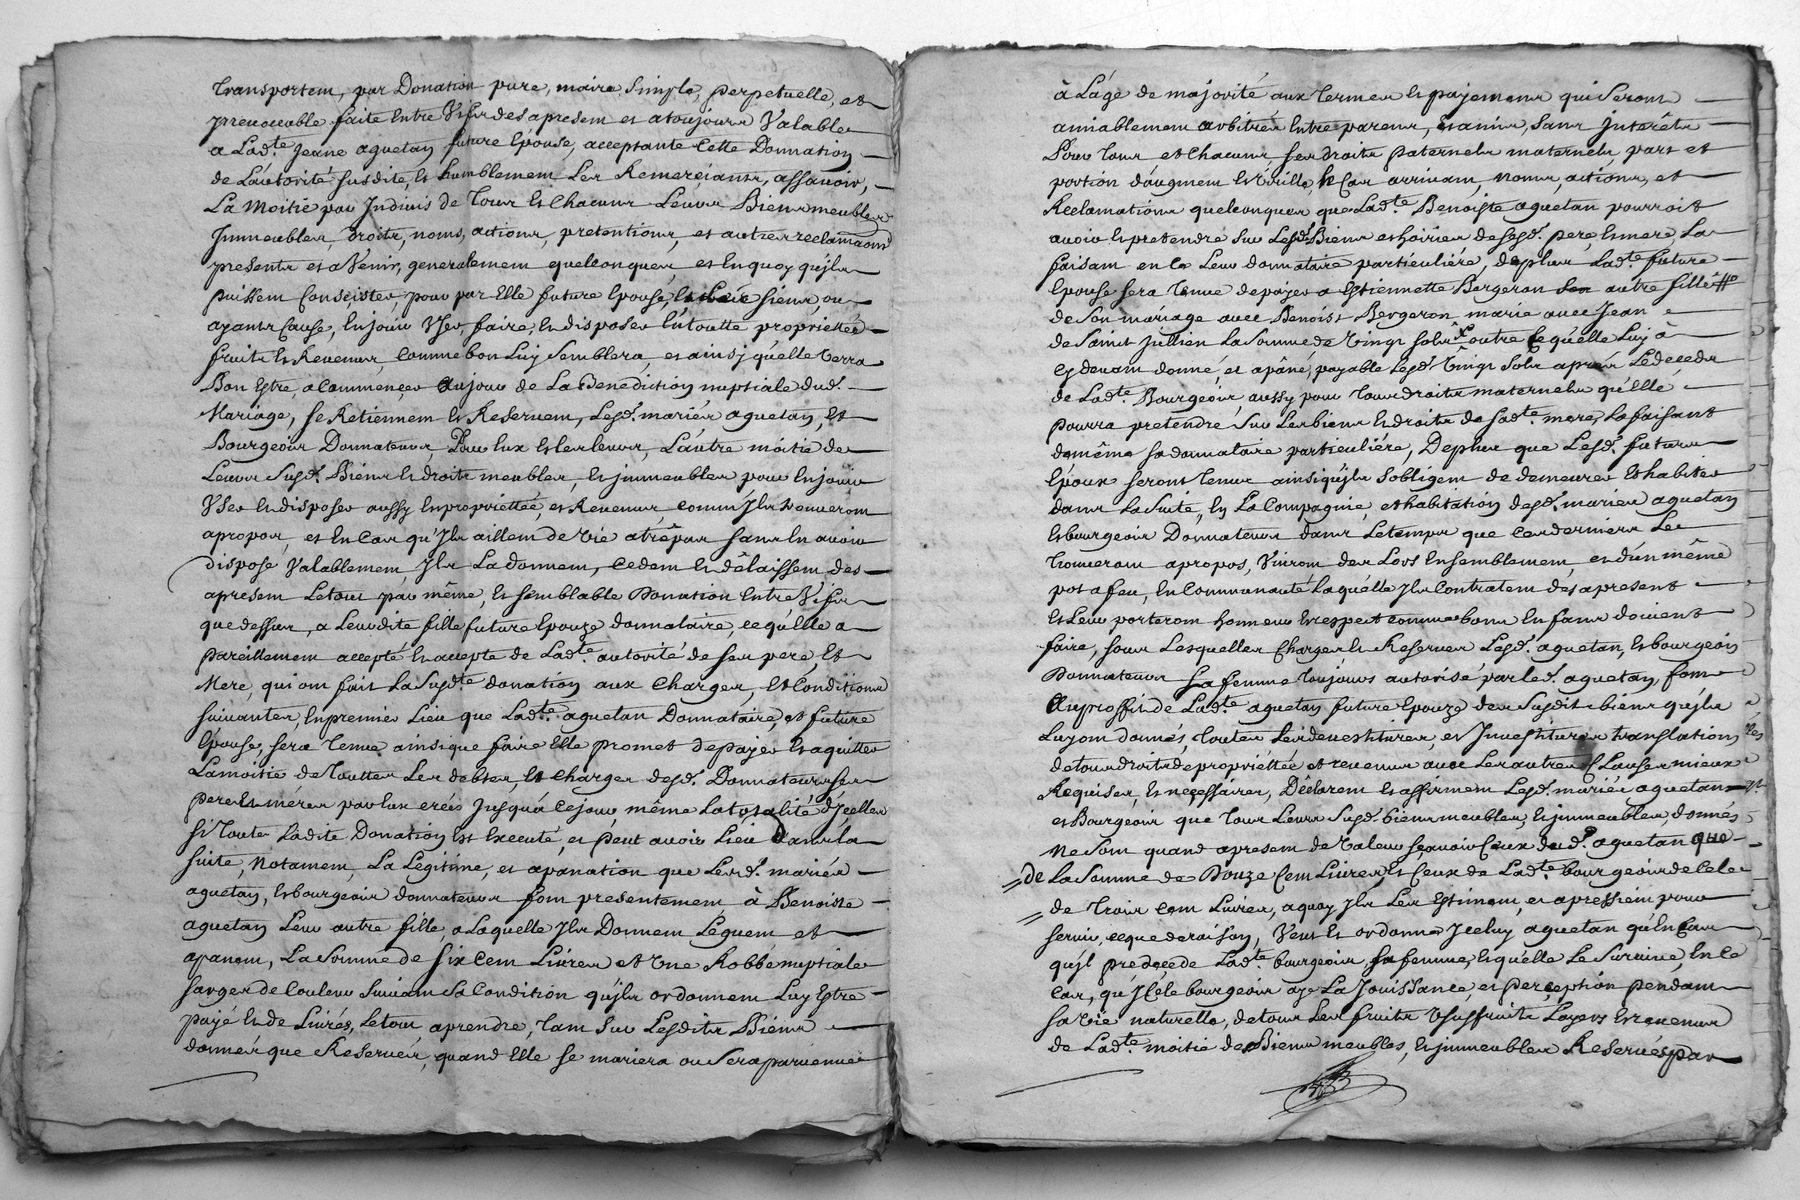 transportent, par Donation pure, maire simple, perpetuelle, et
yrreuocable faite entre Vifs des apresent et atoujours Valable
a Ladte. Jeane aguetan future Epouse, acceptante Cette Donnation
de L'autorité susdite, et humblement Les Remerçiants, assauoir,
La Moitié par Indiuis de Tous et Chacuns Leurs Biens meubles
Immeubles, droits, noms, actions, pretentions, et autres reclamaons
presents et a Venir, generalement quelconques, et En quoy qu'jls
puissent Consister, pour par Elle future Epouse, Et siens, ou
ayants Cause, En jouir Vser faire, et disposer En toutte proprieté
fruits et Reuenus, comme bon Luy Semblera et ainsj qu'elle Verra
Bon Estre, a Commençer aujour de La Benediction nuptiale dud.
Mariage, se Retiennent et Reseruent, Lesd. mariés aguetan, Et
Bourgeois Donnateurs Pour Eux et Les leurs, L'autre moitié de
Leurs susd. Biens et droits meubles, et jmmeubles pour En jouir
Vser et disposer aussy En proprietée, et Reuenus, comm'jls trouueront
apropos, et En Cas qu'Jls aillent de Vie atrêpas sans En auoir
dispose Valablement, Jls La donnent, cedent et délaissent des
apresent Letout par même, et semblable Donation Entre Vifs
que dessus, a Leurdite fille future Epouze donnataire, ce qu'elle a
pareillement accepté et accepte de Ladte. autorité de ses pere, Et
Mere, qui ont fait La susdte. donation aux Charges, Et Conditions
suiuantes, En premier Lieu que Ladte. aguetan Donnataire, et future
Epouse, sera tenue ainsique faire Elle promet de payer Et aquitter
Lamoitié de Touttes Les debtes, Et Charges desd. Donnateurs ses
pere et mére par Eux créés Jusqu'á Cejour, même La totalité d'Jcelles
si Toute Ladite Donation Est Executé, et peut auoir Lieu dans la
suite, Notament, La Legitime, et apanation que Lesd. mariés
aguetan, Et bourgeois donnateurs font presentement à Benoiste
aguetan Leur autre fille, a Laquelle Jls Donnent Leguent et
apanent, La Somme de Six Cent Liures et Vne Robbe nuptiale
sarge de Couleur Suiuant Sa Condition qu'jls ordonnent Luy Estre
payé En de Liurés, Letout aprendre, tant Sur Lesdits Biens
donnés que Reserués, quand Elle se mariera ou Sera paruenue
à L'áge de majorité aux termes et payements qui Seront
amiablement arbitrés Entre parents, Et amis, Sans Interêts
Pour Tous et Chacuns ses droits paternels maternels, part et
portion d'augment Et Virille Cas arriuant, noms, actions, et
Reclamations quelconques que Ladte. Benoiste aguetan pourroit
auoir Et pretendre sur Lesds. Biens et hoiries de sesd. pere, Et mere La
faisant en ce Leur donnataire particuliére, de plus Ladte. future
Epouse Sera Tenue depayer a Estiennette Bergeron autre fille
de Son mariage auec Benoist Bergeron marié auec Jean
de Saint Jullien La Somme de Vingt Sols outre Ce qu'elle Luy à
cy deuant donné, et apâné, payable Lesd. Vingt Sols aprés Le decedz
de Ladte. Bourgeois, aussy pour tous droits maternels qu'elle
pourra pretendre Sur Les biens et droits de Sadte. mere, La faisant
de même Sa donnataire particuliére, De plus que Lesd. futurs
Epoux seront Tenus ainsiqu'jls S'obligent de demeurer Et habiter
dans La Suite, En La Compagnie, et habitation desd. mariés aguetan
Et bourgeois Donnateurs dans Letemps que Ces derniers Le
trouueront apropos, Viuront des Lors Ensemblement, et d'un même
pot a feu, En Communauté Laquélle Jls Contractent dés apresent
Et Leur porteront honneur Et respect comme bons Enfans doiuent
faire, sous Lesquelles Charges, et Reserues Lesd. aguetan, Et bourgeois
Donnateurs La femme toujours autorisé par led. aguetan, font
Auproffit de Ladte. aguetan future Epouze des Susdits biens qu'jls
Luy ont donnés, toutes Les deuestitures, et Inuestitures translations
de tous droits de proprietée et reuenus auec Les autres Clauses mieux
Requises, Et necessaires, Déclarent Et affirment Lesd. mariés aguetan
et Bourgeois que tous Leurs Susd. biens meubles, et jmmeubles, donnés
Ne Sont quand apresent de Valeur sçauoir Ceux dud. aguetan que
de La Somme de Douze Cent Liures, Et Ceux de Ladte. bourgeois de Celle
de Trois cent Liures, aquoy Jls Les Estiment, et apressient pour
seruir, ce que de raison, Veut Et ordonne Jceluy aguetan qu'En Cas
qu'jl predecede Ladte. bourgeois sa femme, Et qu'elle Le Suruiue, En Ce
Cas, que Jcele bourgeois aye La Jouissance, et perception pendant
sa Vie naturelle, de tous Les fruits Vsuffruits Loyers Et reuenus
de Ladte. moitié de Biens meubles, et jmmeubles Reserués par